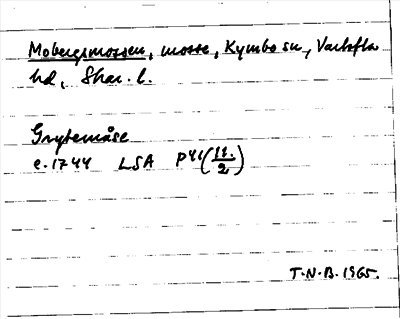 Mobergsmossen, mosse, Kymbo sn, Vartofta
hd, Skar. l.
Grytemåse
c. 1744 LSA P41 (11./2)
T.N.B. 1965.